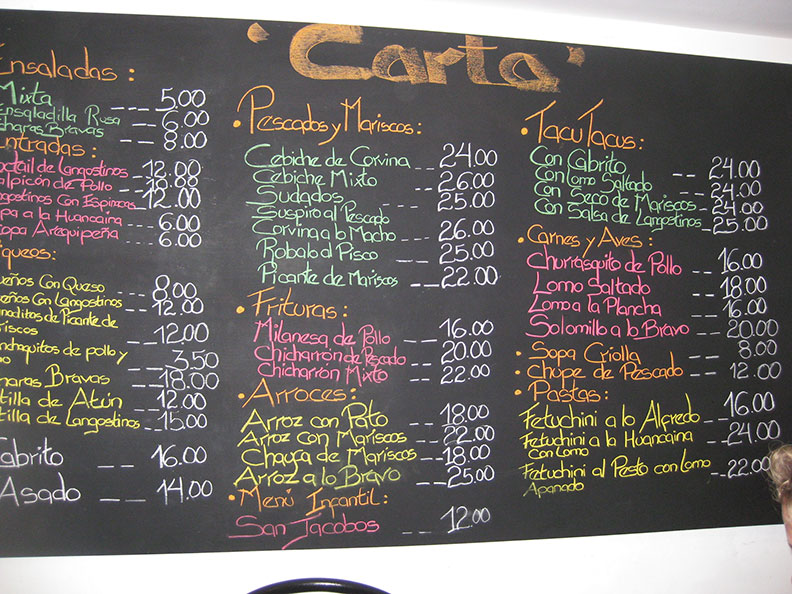 Carta
Ensaladas:
Mixta --- 5.00
Ensaladilla Rusa -- 6.00
charas Bravas -- 8.00
Entradas:
octail de Langostinos -- 12.00
alpicón de Pollo --
ngostinos Con Espinacas -- 12.00
pa a la Huancaina -- 6.00
opa Arequipeña -- 6.00
iqueos:
ueños Con Queso -- 8.00
eños Con Langostinos -- 12.00
naditos de Picante de
riscos -- 12.00
nchaquitos de pollo y
no -- 3.50
haras Bravas -- 18.00
tilla de Atún -- 12.00
tilla de Langostinos -- 15.00
Cabrito -- 16.00
Asado --- 14.00
• Pescados y Mariscos:
Cebiche de Corvina -- 24.00
Cebiche Mixto -- 26.00
Sudados -- 25.00
Suspiro al Pescado
Corvina a lo Macho -- 26.00
Robalo al Pisco -- 25.00
Picante de Mariscos -- 22.00
• Frituras:
Milanesa de Pollo -- 16.00
Chicharrón de Pescado -- 20.00
Chicharrón Mixto -- 22.00
• Arroces:
Arroz con Pato -- 18.00
Arroz con Mariscos -- 22.00
Chaufa de Mariscos -- 18.00
Arroz a lo Bravo -- 25.00
• Menú Infantil:
San Jacobos -- 12.00
• Tacu Tacus:
Con Cabrito -- 24.00
Con Lomo Saltado -- 24.00
Con Seco de Mariscos -- 24.00
Con Salsa de Langostinos -- 25.00
• Carnes y Aves:
Churrasquito de Pollo -- 16.00
Lomo Saltado -- 18.00
Lomo a la Plancha -- 16.00
Solomillo a lo Bravo -- 20.00
• Sopa Criolla -- 8.00
• Chupe de Pescado -- 12.00
• Pastas:
Fetuchini a lo Alfredo -- 16.00
Fetuchini a la Huancaina
con Lomo -- 24.00
Fetuchini al Pesto con Lomo -- 22.00
Apanado